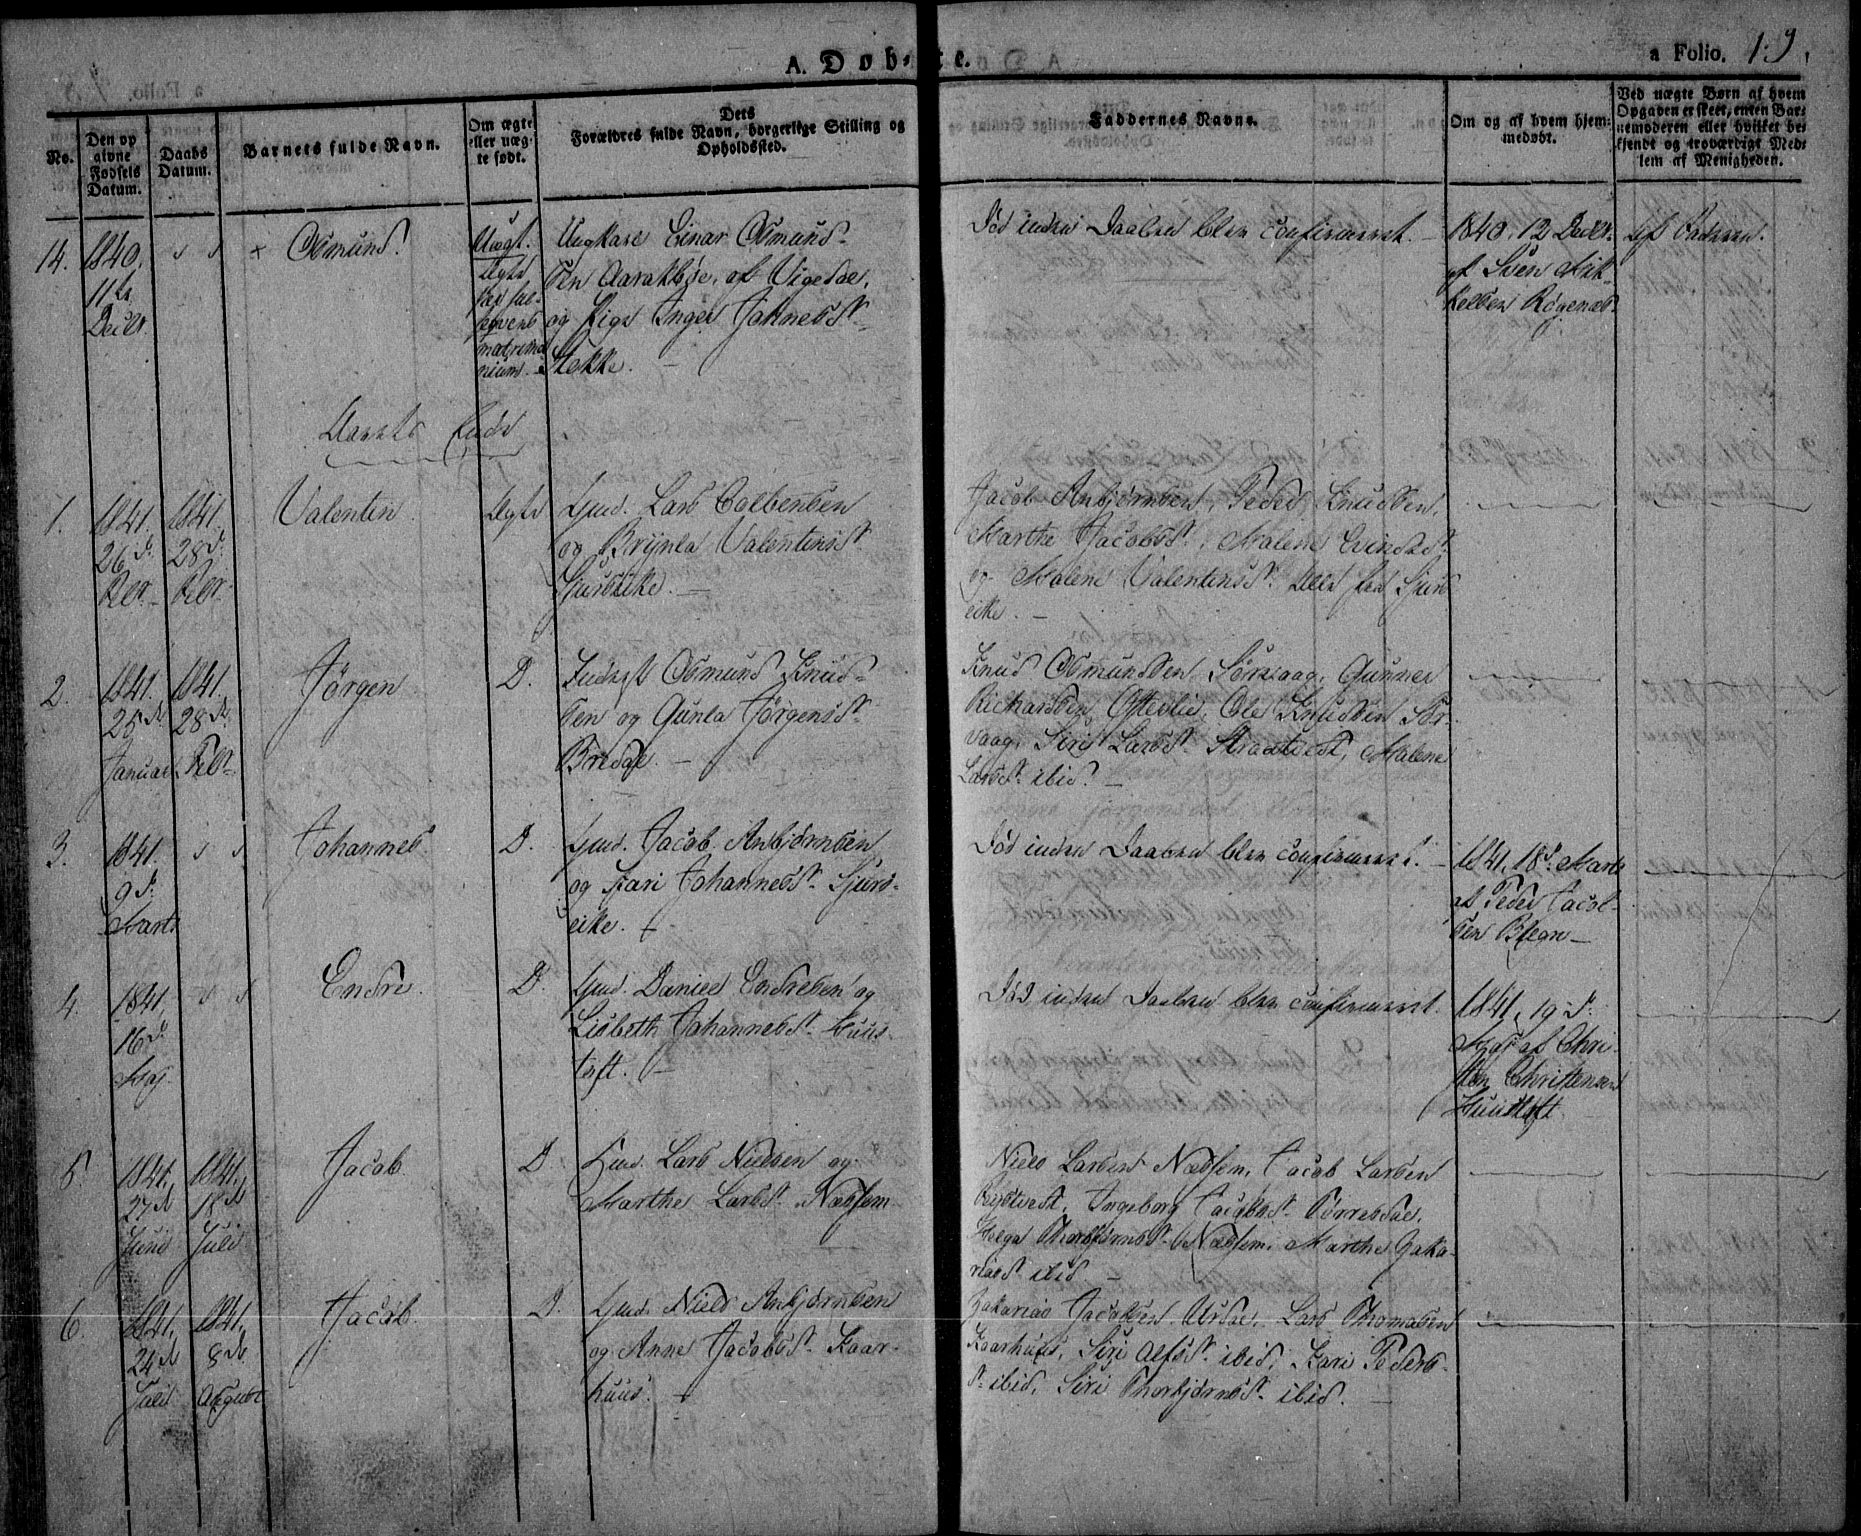 A. Døbte.
a Folio. 19.
No.
Den op
givne
Fødsels
Datum.
Daabs
Datum.
Barnets fulde Navn.
Om ægte
eller uæg-
te født.
Dets
Forældres fulde Navn, borgerlige Stilling og
Opholdssted.
Faddernes Navne.
Om og af hvem hjem-
medøbt.
Ved uægte Børn af hvem
Opgaven er skeet, enten Bar-
nemoderen eller hvilket be-
kjendt og troværdigt Med-
lem af Menigheden.
14.
1840.
11te
Decbr.
Osmund.
Uægt.
Ægte
per sub-
seqvens
matrimo
nium.
Ungkarl Einar Osmund-
sen Aarakbøe, af Vigedal,
og Pige Inger Johnesdt.
Stokke.
Død inden Daaben blev confirmeret.
1840. 12 Decbr.
af Sven Mik-
kelsen Røgenæs
Af Faderen.
Aarets Ende
1.
1841.
26 d.
Febr.
1841.
28 d.
Febr.
Valentin
Ægte
Gmd. Lars Colbensen
og Brynla Valentinsdt.
Sjurseike.
Jacob Anbjørnsen, Peder Knudsen,
Marthe Jacobsdt., Malene Eindsdt.
og Malene Valentinsdt. alle fra Sjurs
eike.
2.
1841.
25 de
Januar
1841.
28 de
Febr.
Jörgen
D.
Inderst Osmund Knud-
sen og Gunla Jörgensdt.
Bredal.
Knud Osmundsen Sørvaag, Gunner
Richardsen Ofterlie, Ole Knudsen Sør-
vaag, Siri Larsdt. Straatvedt, Malene
Larsdt. ibid.
3.
1841.
9 d.
Marts
Johannes
D.
Gmd. Jacob Anbjørnsen
og Kari Johannesdt. Sjurs-
eike.
Død inden Daaben blev confirmeret.
1841. 18 d. Marts
af Peder Jacob-
sen Blegn
4.
1841.
16 d.
Maj
Endre.
D.
Gmd. Daniel Endresen og
Lisbeth Johannesdt. Huus-
toft.
Død inden Daaben blev confirmeret.
1841. 19 d.
Maj af Chri-
sten Christensen
Huustoft
5.
1841.
27 de
Juni
1841.
18 de
Juli
Jacob
D.
Gmd. Lars Nielsen og
Marthe Larsdt. Næshem
Niels Larsen Næshem, Jacob Larsen
Ingeborg Jacobsdt. Tørresdal,
Helga Thorbjørnsdt. Næshem, Marthe Zaka-
riasdt. ibid.
6.
1841.
24 de
Juli
1841.
8 de
August
Jacob.
D.
Gmd. Niels Anbjørnsen
og Anne Jacobsdt. Kaar-
huus.
Zakarias Jacobsen Urdal, Lars Thomasen
Kaarhuus, Siri Alfsdt. ibid, Kari Peders-
dt. ibid, Siri Thorbjørnsdt. ibid.